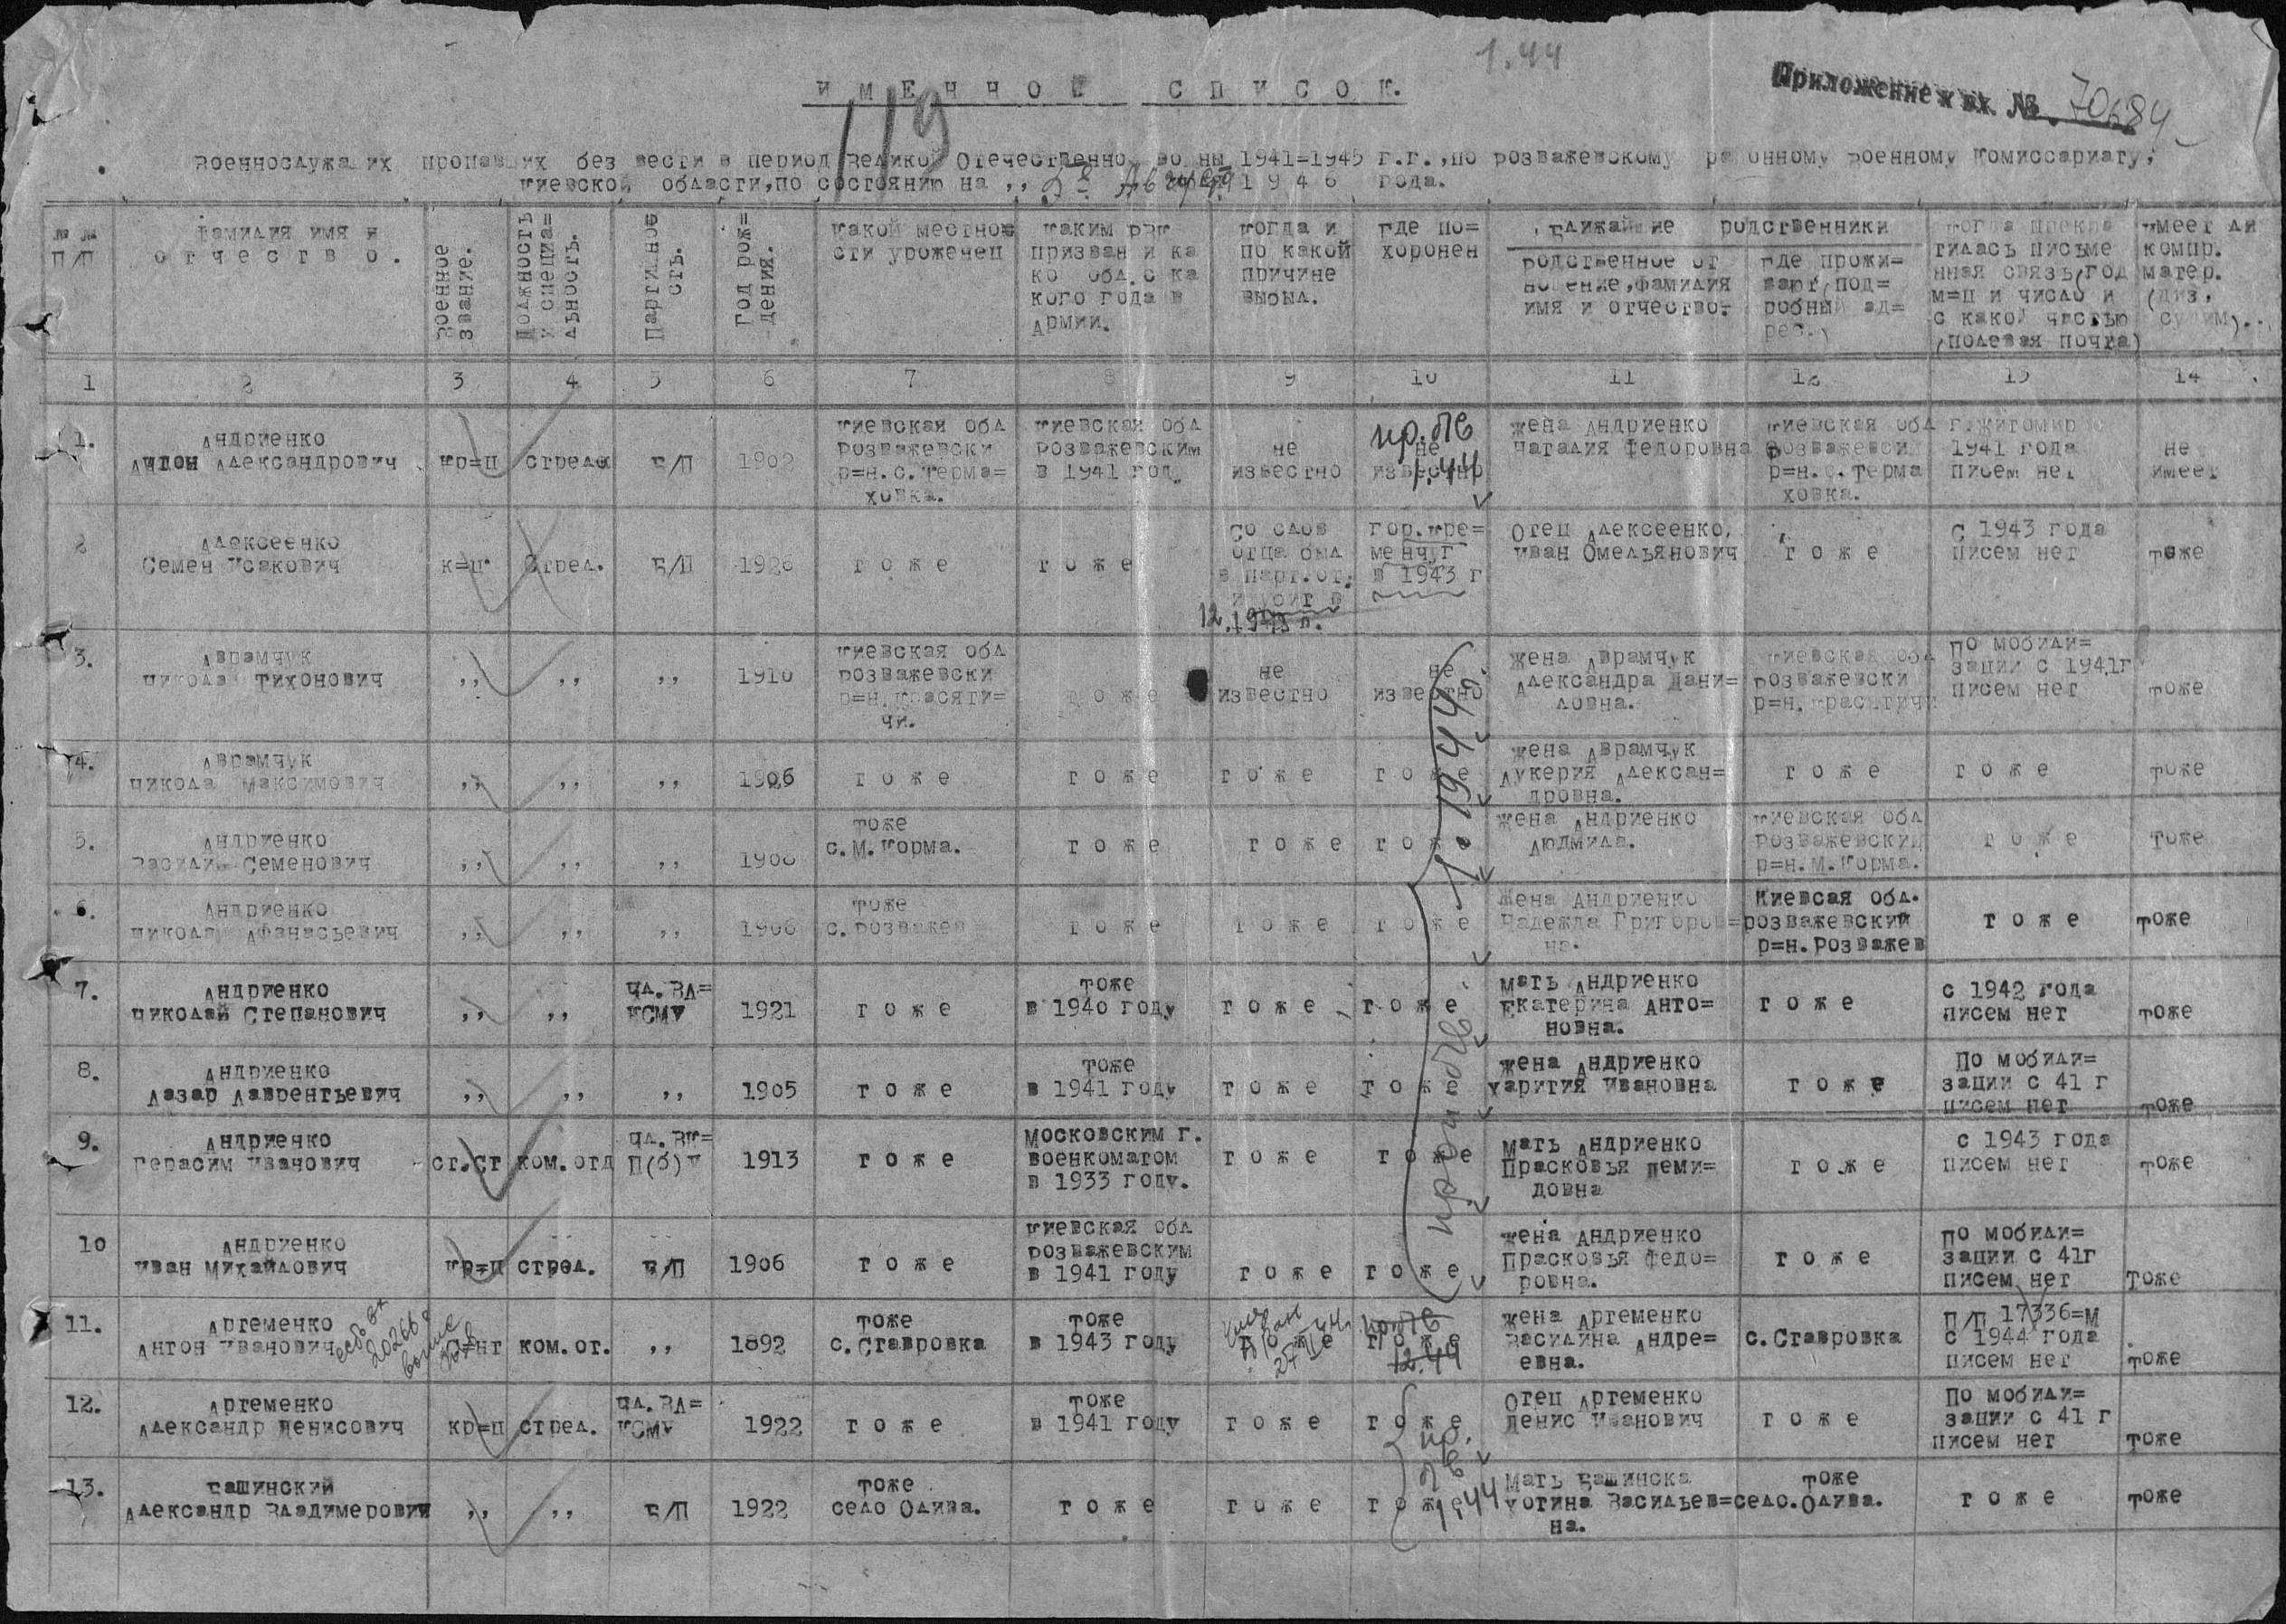 1.44
ИМЕННОЙ СПИСОК.
Приложение к вх. № 70684
119
военнослужащих пропавших без вести в период Великой Отечественной войны 1941=1945 г.г.,по Розважевскому районному военному Комиссариату,
Киевской области,по состоянию на ,, 5е Августа 1946 года.
№ № П/П
фамилия имя и отчество.
военное звание.
Должность и специа=льность.
Партийность.
Год рож=дения.
какой местности урожечец
каким РВК призван и како обл. с какого года в Армии.
когда и по какой причине выбыл.
где по=хоронен
Ближайшие родственники
родственное отношение,фамилия имя и отчество.
где прожи=вает(под=робный ад=рес.)
когда прекратилась письменная связь(год м=ц и число и с какой частью (полевая почта)
имеет ли компр. матер. (диз, судим).
1 2 3 4 5 6 7 8 9 10 11 12 13 14
1. Андриенко Антон Александрович кр=ц стрелк Б/П 1902
Киевская обл Розважевски р=н.с.Терма=ховка.
Киевская обл Розважевским в 1941 год.
не известно
не известно
пр. б/в 1.44
жена Андриенко Наталия Федоровна
Киевская обл Розважевски р=н.с.Терма ховка.
г.Житомир 1941 года писем нет
не имеет
2 Алексеенко Семен Исакович к=ц. Стрел. Б/П 1926 тоже тоже
Со слов отца был в парт.от. и убит в
12.1943 г.
гор.Кре=менчуг в 1943 г
Отец Алексеенко, Иван Омельянович
тоже
С 1943 года писем нет
тоже
3. Аврамчук Никола Тихонович ,, ,, ,, 1910
Киевская обл Розважевски р=н.Красяти=чи.
тоже
не известно
не известно
жена Аврамчук Александра Дани=ловна.
Киевская обл Розважевски р=н.Красятичи
По мобили=зации с 1941г писем нет
тоже
4. Аврамчук Никола Максимович ,, ,, ,, 1906 тоже тоже тоже тоже
жена Аврамчук Лукерия Алексан=дровна.
тоже тоже тоже
5. Андриенко Василий Семенович ,, ,, ,, 1908
тоже с.М.Корма.
тоже тоже тоже
жена Андриенко Людмила.
Киевская обл Розважевский р=н.М.Корма.
тоже тоже
6. Андриенко Никола Афанасьевич ,, ,, ,, 1906
тоже с.Розважев
тоже тоже тоже
жена Андриенко Надежда Григоров=на.
Киевсая обл. розважевский р=н.Розважев
тоже тоже
7. Андриенко Николай Степанович ,, ,, Чл.ВЛ=КСМУ 1921 тоже
тоже в 1940 году
тоже тоже
мать Андриенко Екатерина Анто=новна.
тоже
с 1942 года писем нет
тоже
8. Андриенко Лазар Лаврентьевич ,, ,, ,, 1905 тоже
тоже в 1941 году
тоже тоже
жена Андриенко Харития Ивановна
тоже
По мобили=зации с 41 г писем нет
тоже
9. Андриенко Герасим Иванович ст.ст ком.отд Чл.ВК=П(б)У 1913 тоже
Московским г. военкоматом в 1933 году.
тоже тоже
мать Андриенко Прасковья Деми=довна
тоже
с 1943 года писем нет
тоже
10 Андриенко Иван Михайлович кр=ц стрел. Б/П 1906 тоже
Киевская обл Розважевским в 1941 году
тоже тоже
жена Андриенко Прасковья Федо=ровна.
тоже
По мобили=зации с 41г писем нет
Тоже
1.1944 г.
пр. б/в
11. Артеменко Антон Иванович с=нт ком.от. ,, 1892
есть вх 20266
тоже с.Ставровка
тоже в 1943 году
тоже тоже
12.44
жена Артеменко Василина Андре=евна.
с.Ставровка
П/П 17336=М с 1944 года писем нет
тоже
12. Артеменко Александр Денисович кр=ц стрел. Чл.ВЛ=КСМУ 1922 тоже
тоже в 1941 году
тоже тоже
Отец Артеменко Денис Иванович
тоже
По мобили=зации с 41 г писем нет
тоже
13. Башинский Александр Владимерович ,, ,, Б/П 1922
тоже село Олива.
тоже тоже тоже
пр. б/в 1.44
Мать Башинска Хотина Васильев=на.
тоже село.Олива.
тоже тоже